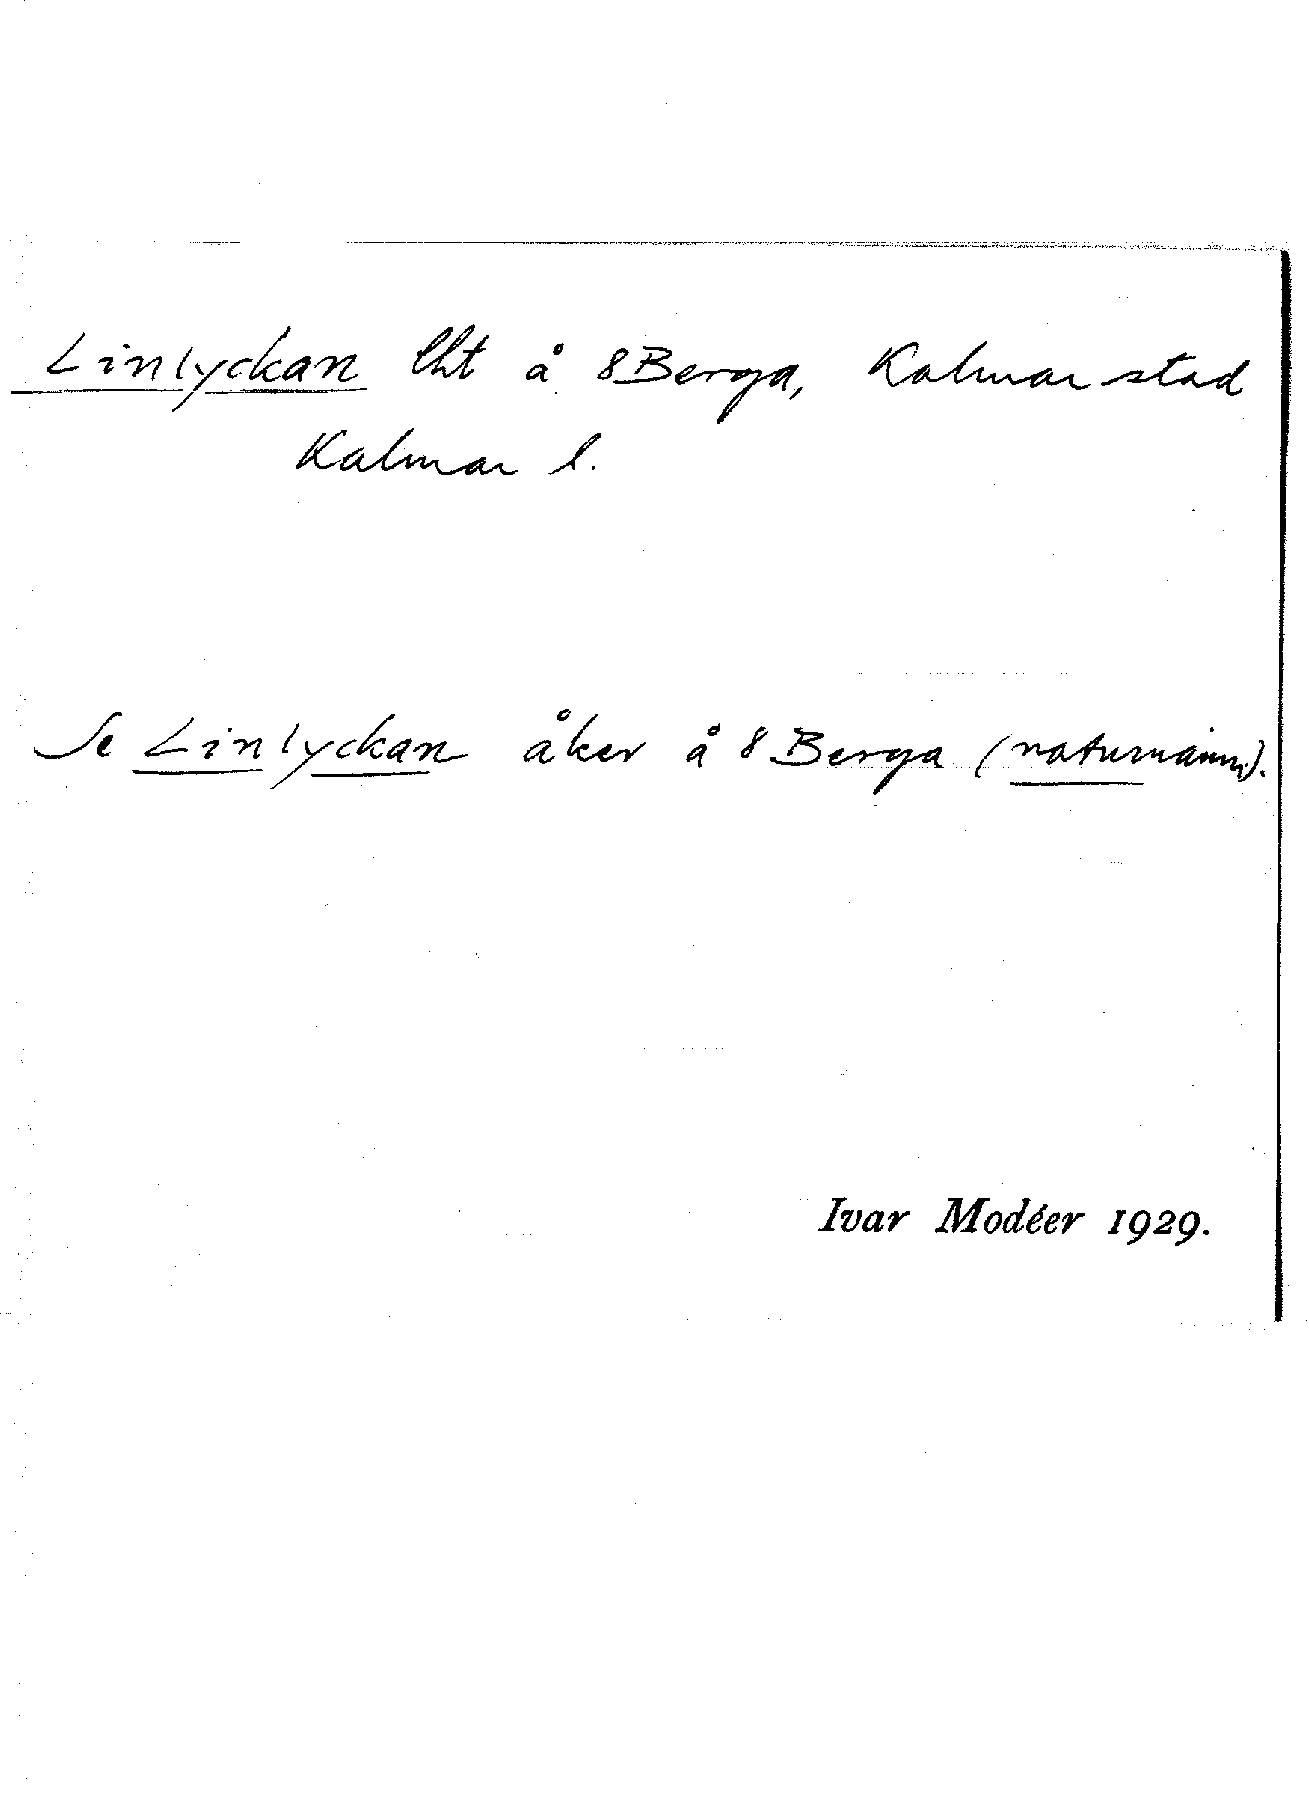 Linlyckan lht å 8 Berga, Kalmar stad
Kalmar l.
Se Linlyckan åker å 8 Berga (naturnamn).
Ivar Modéer 1929.